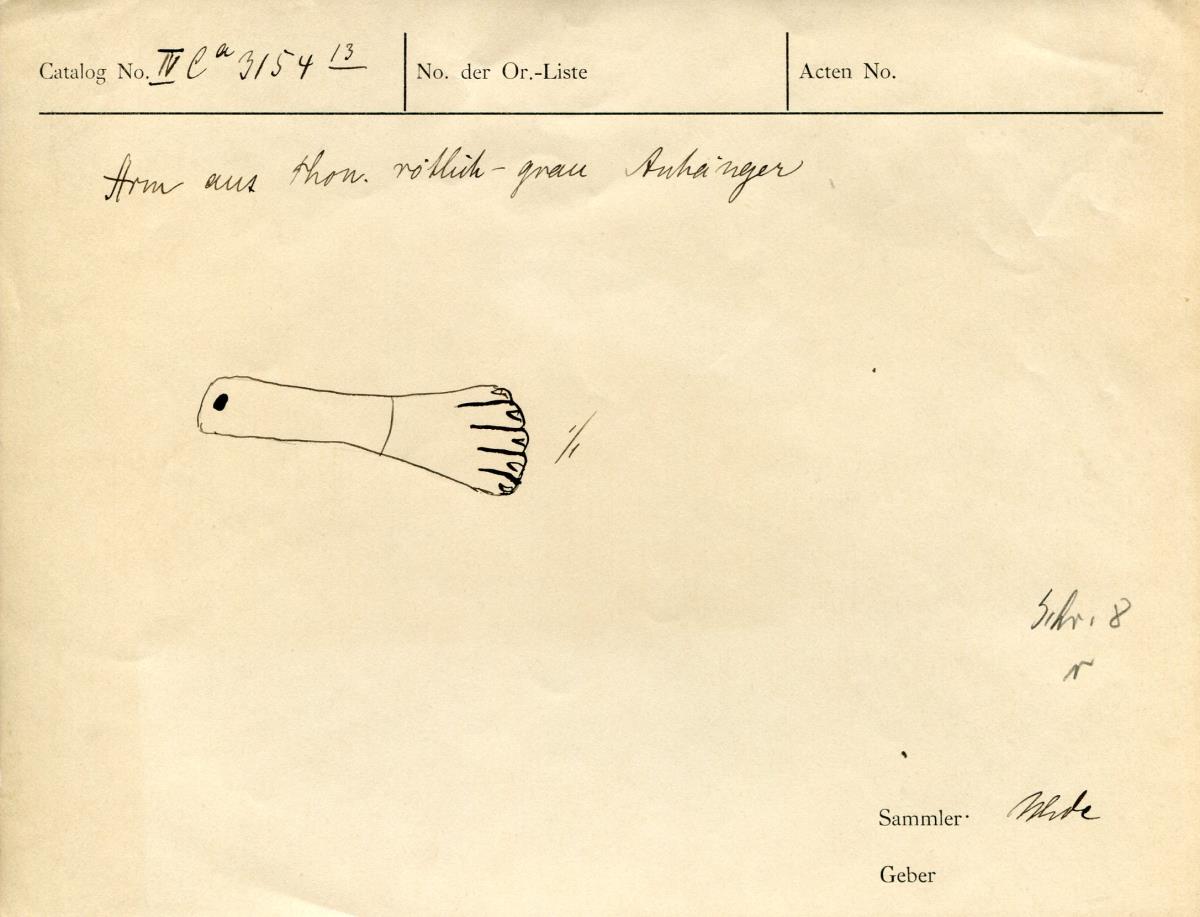 Catalog No. IV Ca 3154 13
No. der Or.-Liste
Acten No.
Arm aus Thon. rötlich-grau Anhänger
1/1
Schr. 8
r
Sammler Uhde
Geber